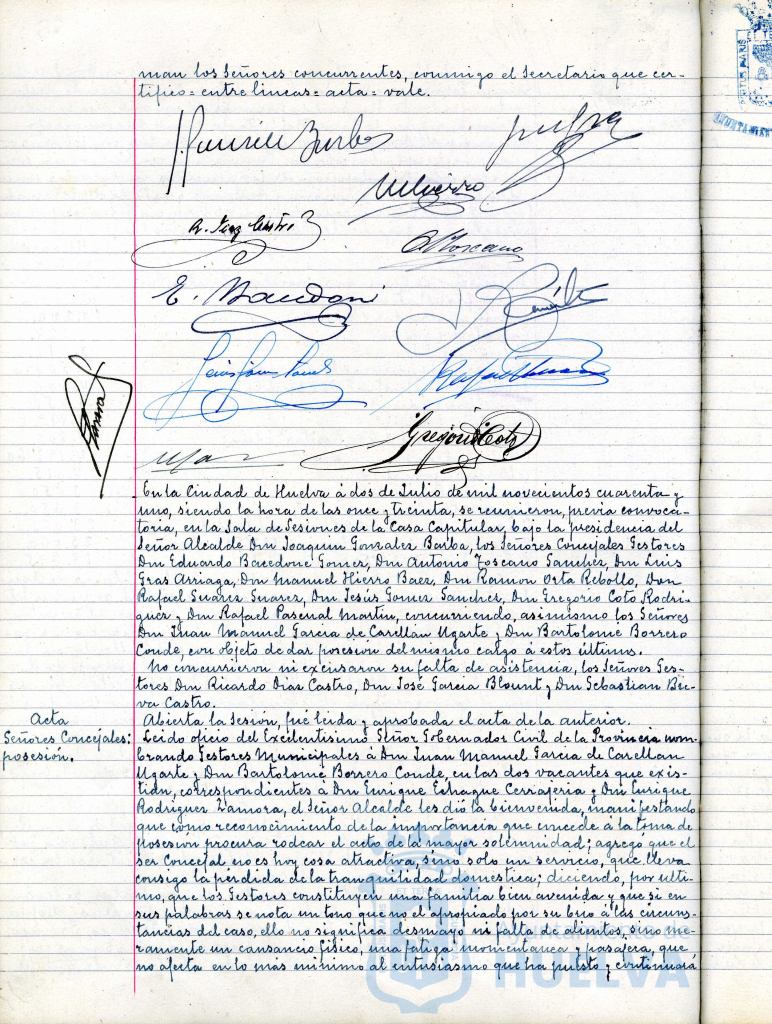 man los Señores concurrentes, conmigo el Secretario que cer-
tifico = entre lineas = acta = vale.
R. Diaz Castro
A Toscano
E. Bacedoni
Gregorio Coto
En la Ciudad de Huelva á dos de Julio de mil novecientos cuarenta y
uno, siendo la hora de las once y treinta, se reunieron, previa convoca-
toria, en la Sala de Sesiones de la Casa Capitular, bajo la presidencia del
Señor Alcalde Don Joaquin Gonzalez Barba, los Señores Concejales Gestores
Don Eduardo Bacedone Gomez, Don Antonio Toscano Sanchez, Don Luis
Gras Arriaga, Don Manuel Hierro Baez, Don Ramon Orta Rebollo, Don
Rafael Suarez Suarez, Don Jesús Gomez Sanchez, Don Gregorio Coto Rodri-
guez y Don Rafael Pascual Martin, concurriendo, asimismo los Señores
Don Juan Manuel Garcia de Carellán Ugarte y Don Bartolomé Borrero
Conde, con objeto de dar posesión del mismo cargo á estos últimos.
No concurrieron ni excusaron su falta de asistencia, los Señores Ges-
tores Don Ricardo Diaz Castro, Don José Garcia Blount y Don Sebastian Bue-
va Castro.
Abierta la Sesión, fué leida y aprobada el acta de la anterior.
Acta
Señores Concejales:
posesión.
Leido oficio del Excelentisimo Señor Gobernador Civil de la Provincia nom-
brando Gestores Municipales á Don Juan Manuel Garcia de Carellan
Ugarte y Don Bartolomé Borrero Conde, en las dos vacantes que exis-
tian, correspondientes á Don Enrique Estraque Cerrageria y Don Enrique
Rodriguez Zamora, el Señor Alcalde les dió la bienvenida, manifestando
que como reconocimiento de la importancia que concede á la toma de
posesion procura rodear el acto de la mayor solemnidad; agregó que el
ser Concejal no es hoy cosa atractiva, sino solo un servicio, que lleva
consigo la pérdida de la tranquilidad domestica; diciendo, por ulti-
mo, que los Gestores constituyen una familia bien avenida, y que si en
sus palabras se nota un tono que no el apropiado por su brio á las circuns-
tancias del caso, ello no significa desmayo ni falta de alientos, sino me-
ramente un cansancio fisico, una fatiga momentanea y pasajera, que
no afecta en lo mas minimo al entusiasmo que ha puesto y continuará
HUELVA